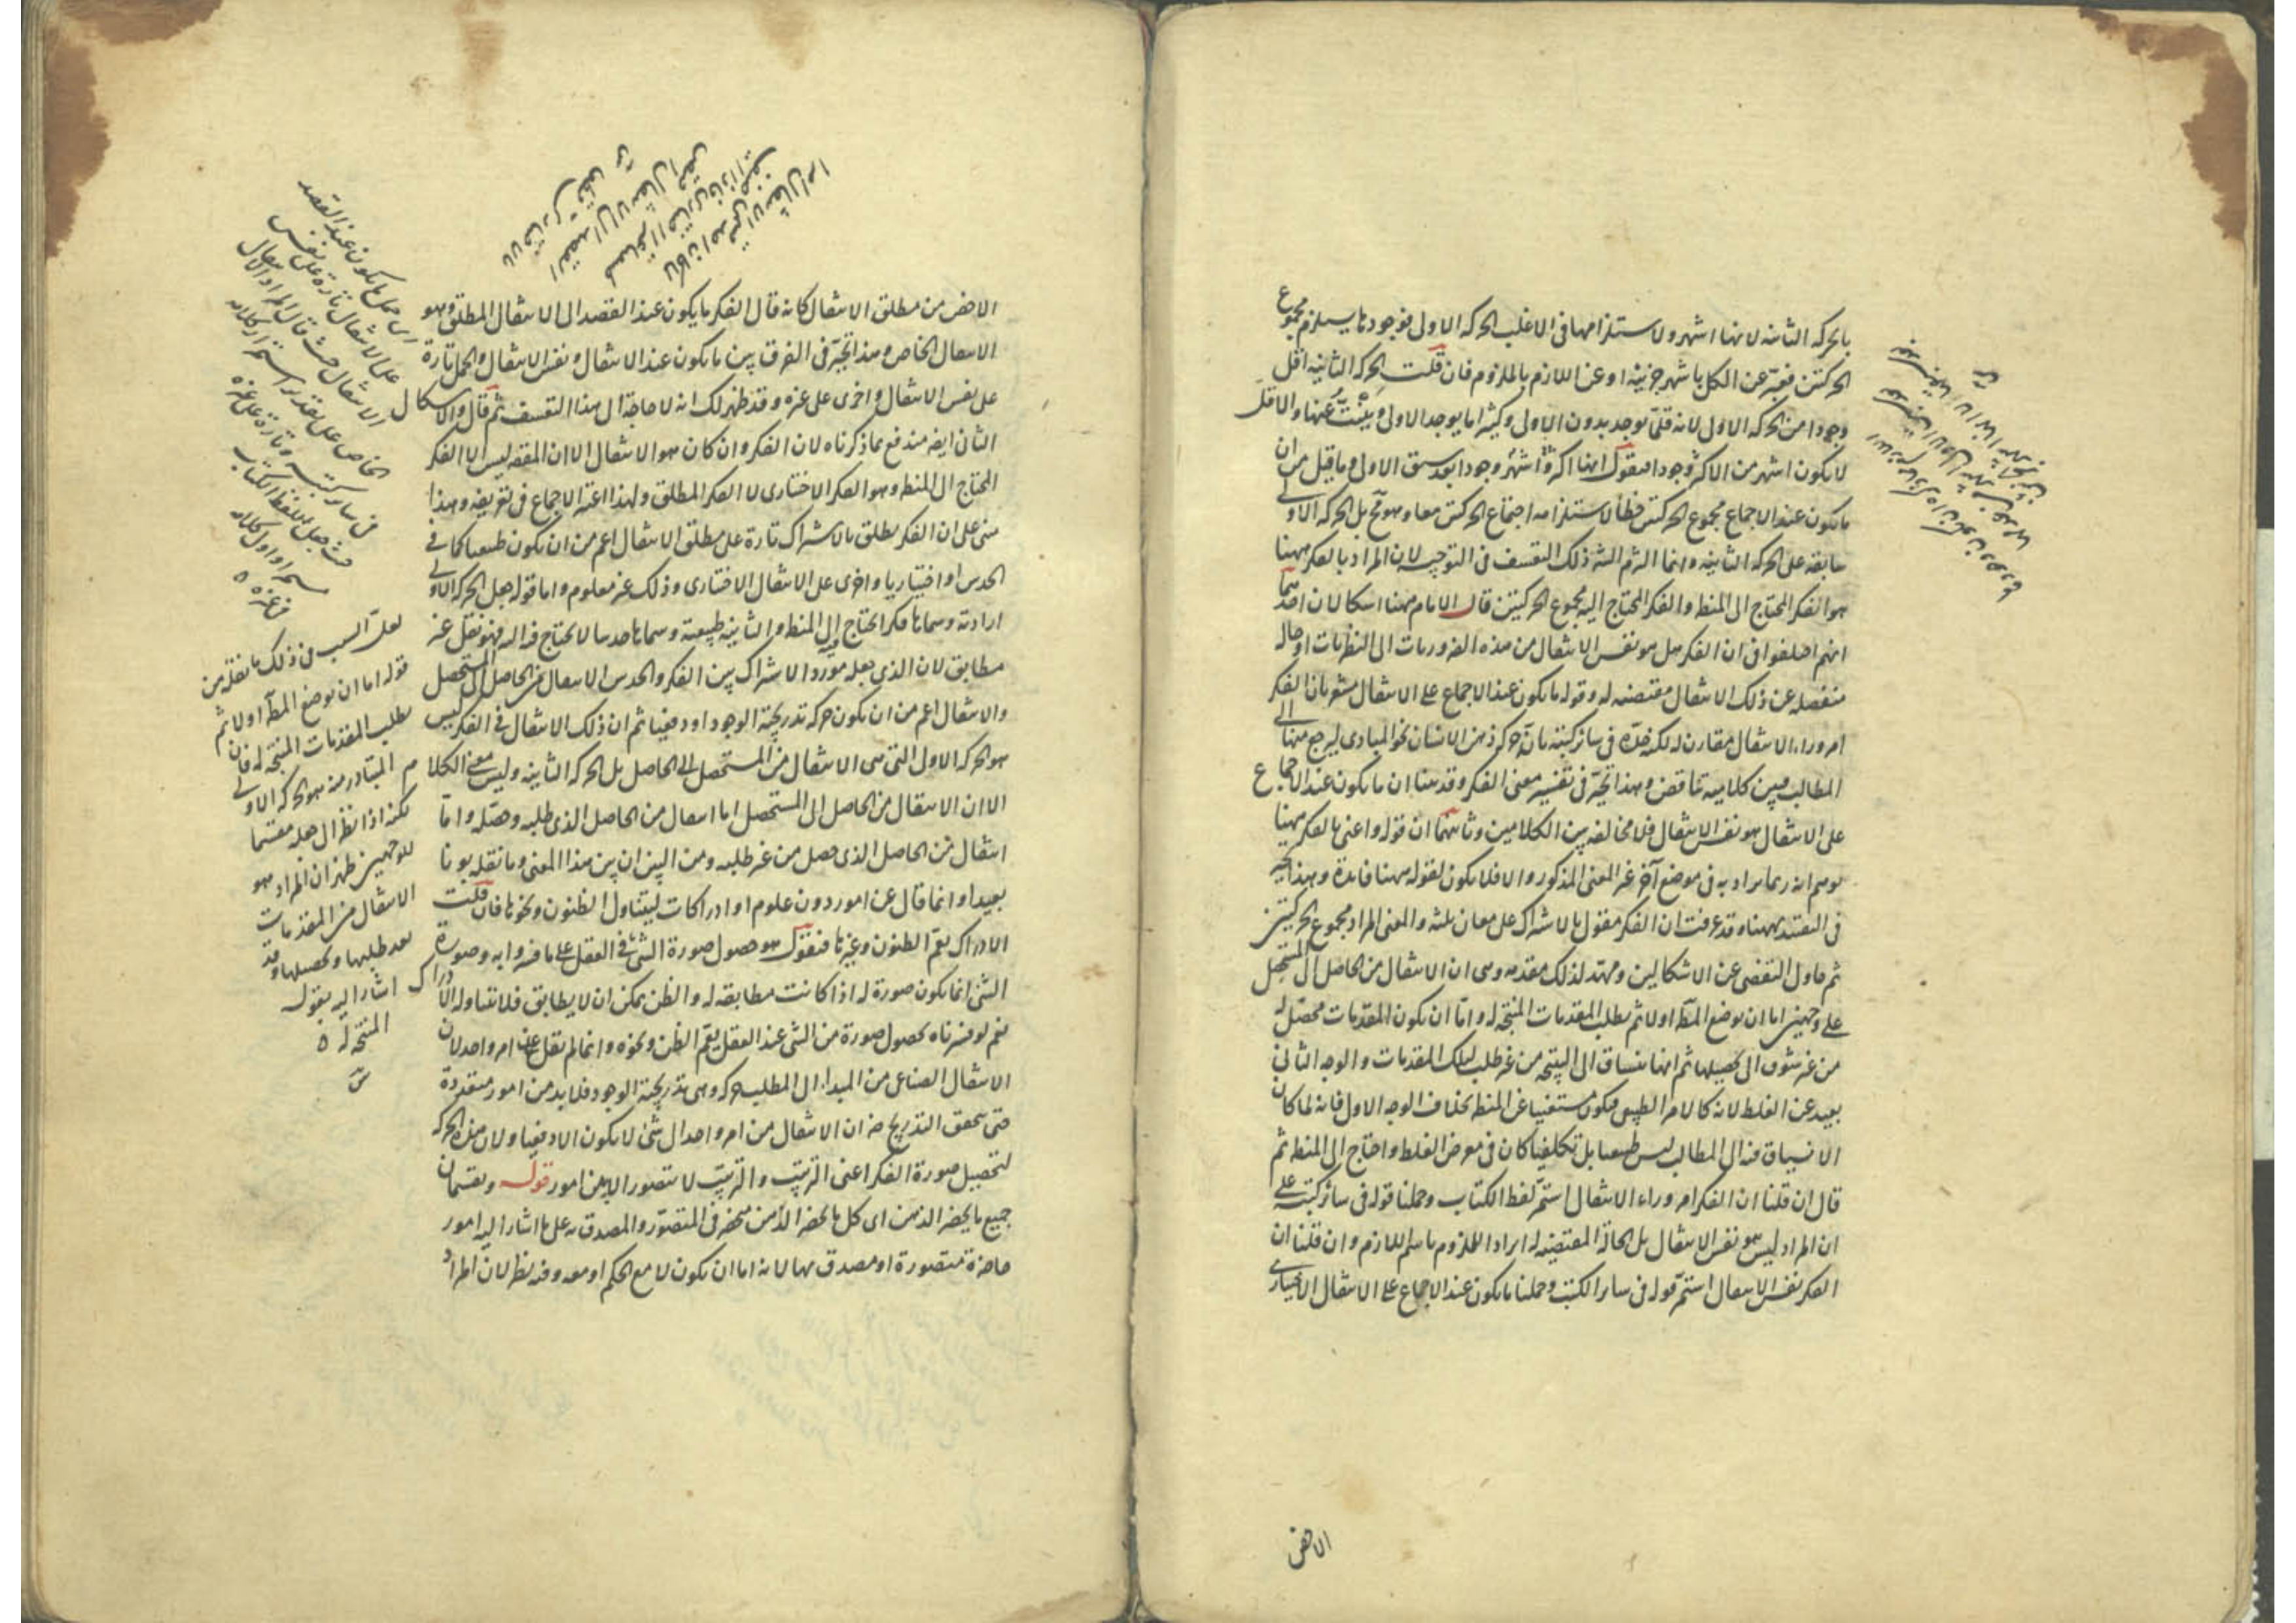 بالحركة الثانية لانها اشهر ولاستلزامها فى الاغلب الحركة الاولى فوجودها يستلزم مجموع
الحركتين فعبّر عن الكل باشهر جزئيه او عن اللازم بالملزوم فان قلت الحركة الثانية اقل
وجودا من الحركة الاولى لانه قلّما توجد بدون الاولى وكثيرا ما يوجد الاولى وينبتّ عنها والاقل
لا يكون اشهر من الاكثر وجودا فنقول انها اكثر واشهر وجودا بعد سبق الاولى وما قيل من ان
ما يكون عند الاجماع مجموع الحركتين خطأ لاستلزامه اجتماع الحركتين معا وهو مح بل الحركة الاولى
سابقة على الحركة الثانية وانما الزم الشه ذلك التعسف فى التوجيه لان المراد بالفكر ههنا
هو الفكر المحتاج الى المنطق والفكر المحتاج اليه مجموع الحركتين قال الامام ههنا اشكالان احدهما
انهم اختلفوا فى ان الفكر هل هو نفس الانتقال من هذه الضروريات الى النظريات او حالة
منفصلة عن ذلك الانتقال مقتضية له وقوله ما يكون عند الاجماع على الانتقال مشعر بان الفكر
امر وراء الانتقال مقارن له لكنه حدّه فى سائر كتبه بانه حركة ذهن الانسان نحو المبادى ليرجع منها الى
المطالب فبين كلاميه تناقض وهذا تحيّر فى تفسير معنى الفكر وقد بينا ان ما يكون عند الاجماع
على الانتقال هو نفس الانتقال فلا مخالفة بين الكلامين وثانيهما ان قوله واعنى بالفكر ههنا
يوهم انه ربما يراد به فى موضع آخر غير المعنى المذكور والا فلا يكون لقوله ههنا فائدة وهذا تحيّر
فى التقييد بههنا وقد عرفت ان الفكر مقول بالاشتراك على معان ثلثة والمعنى المراد مجموع الحركتين
ثم حاول التفصى عن الاشكالين ومهّد لذلك مقدمة وهى ان الانتقال من الحاصل الى المستحصل
على وجهين اما ان يوضع المط اولا ثم يطلب المقدمات المنتجة له واما ان يكون المقدمات محصّلة
من غير شوق الى تحصيلها ثم انها تنساق الى النتيجة من غير طلب لتلك المقدمات والوجه الثانى
بعيد عن الغلط لانه كالامر الطبيعى فيكون مستغنيا عن المنطق بخلاف الوجه الاول فانه لما كان
الانسياق فيه الى المطالب ليس طبيعيا بل تكلفيا كان فى معرض الغلط واحتاج الى المنطق ثم
قال ان قلنا ان الفكر امر وراء الانتقال استمرّ لفظ الكتاب وحملنا قوله فى سائر كتبه على
ان المراد ليس هو نفس الانتقال بل الحالة المقتضية له ايرادا للملزوم باسم اللازم وان قلنا ان
الفكر نفس الانتقال استمرّ قوله فى سائر الكتب وحملنا ما يكون عند الاجماع على الانتقال الاختيارى
الاخص
الاخص من مطلق الانتقال كانه قال الفكر ما يكون عند القصد الى الانتقال المطلق وهو
الانتقال الخاص وهذا تحيّر فى الفرق بين ما يكون عند الانتقال ونفس الانتقال والحمل تارة
على نفس الانتقال واخرى على غيره وقد ظهر لك انه لا حاجة الى هذا التعسف ثم قال والاشكال
الثانى ايضا مندفع بما ذكرناه لان الفكر وان كان هو الانتقال الا ان المفتقر ليس الا الفكر
المحتاج الى المنطق وهو الفكر الاختيارى لا الفكر المطلق ولهذا اعتبر الاجماع فى تعريفه وهذا
مبنى على ان الفكر يطلق بالاشتراك تارة على مطلق الانتقال اعم من ان يكون طبيعيا كما فى
الحدس او اختياريا واخرى على الانتقال الاختيارى وذلك غير معلوم واما قوله جعل الحركة الاولى
ارادية وسماها فكرا تحتاج الى المنطق والثانية طبيعية وسماها حدسا لا يحتاج فيه اليه فهو نقل غير
مطابق لان الذى جعله مورد الاشتراك بين الفكر والحدس الانتقال من الحاصل الى المستحصل
والانتقال اعم من ان يكون حركة تدريجية الوجود او دفعيا ثم ان ذلك الانتقال فى الفكر ليس
هو الحركة الاولى التى هى الانتقال من المستحصل الى الحاصل بل الحركة الثانية وليس معنى الكلام
الا ان الانتقال من الحاصل الى المستحصل اما انتقال من الحاصل الذى طلبه وحصّله واما
انتقال من الحاصل الذى حصل من غير طلبه ومن البيّن ان بين هذا المعنى وما نقله بونا
بعيدا وانما قال عن امور دون علوم او ادراكات ليتناول الظنون ونحوها فان قلت
الادراك يعمّ الظنون وغيرها فنقول هو حصول صورة الشئ فى العقل على ما فسروا به وصورة
الشئ انما يكون صورة له اذا كانت مطابقة له والظن يمكن ان لا يطابق فلا يتناوله الادراك
نعم لو فسرناه بحصول صورة من الشئ عند العقل يعمّ الظن ونحوه وانما لم يقل عن امر واحد لان
الانتقال الصناعى من المبدا الى المطلب حركة وهى تدريجية الوجود فلا بد من امور متعددة
حتى يتحقق التدريج ضرورة ان الانتقال من امر واحد الى شئ لا يكون الا دفعيا ولان هذه الحركة
لتحصيل صورة الفكر اعنى الترتيب والترتيب لا يتصور الا من امور قوله وبقسمان
جميع ما يحضر الذهن اى كل ما يحضر الذهن منحصر فى المتصوّر والمصدق به على ما اشار اليه امور
حاضرة متصورة او مصدق بها لانه اما ان يكون لا مع الحكم او معه وفيه نظر لان المراد
اى حمل ما يكون عند القصد
على الانتقال تارة على نفس
الانتقال حيث قال المراد الانتقال
الخاص على تقدير استمرار كلامه
فى سائر كتبه وتارة على غيره
حيث جعل لفظ الكتاب
لعل السبب فى ذلك ما نقله من
قوله اما ان يوضع المط اولا ثم
يطلب المقدمات المنتجة له فان
المتبادر منه هو الحركة الاولى
لكنه اذا نظر الى جعله مقسما
للوجهين ظهر ان المراد هو
الانتقال من المقدمات
بعد طلبها وتحصيلها وقد
اشار اليه بقوله
المنتجة له